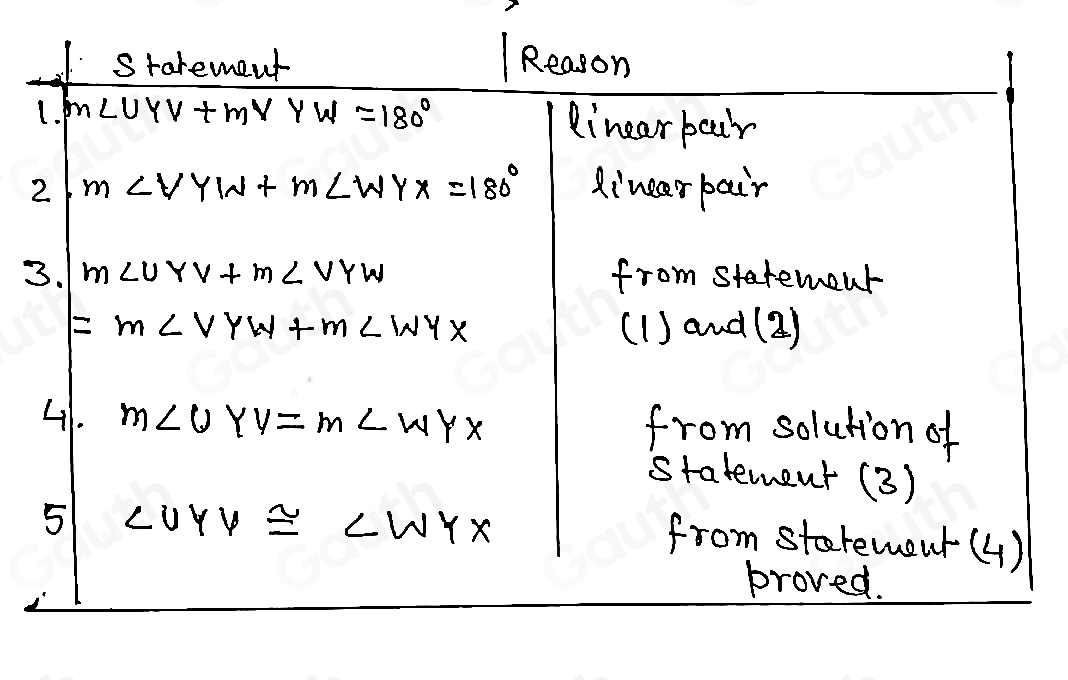 Statement | Reason
1. m∠UYV + mV YW = 180° linear pair
2. m ∠VYW + m∠WYX = 180° linear pair
3. m∠UYV + m∠VYW from statement
= m∠VYW + m∠WYX (1) and (2)
4. m∠UYV = m∠WYX from solution of
statement (3)
5 ∠UYV ≅ ∠WYX from statement (4)
proved.
Gauth